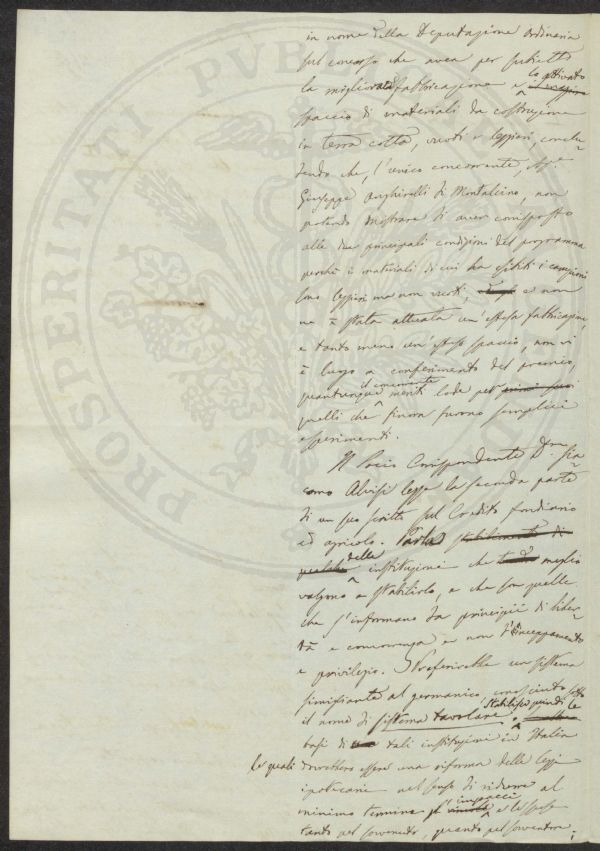 in nome della Deputazione Ordinaria
sul concorso che avea per subietto
la migliorata fabbricazione e lo attivato
spaccio di materiali da costruzione
in terra cotta, vuoti e leggieri, conclu-
dendo che, l'unico concorrente, Sigr.
Giuseppe Anghirelli di Montalcino, non
potendo mostrare di aver corrisposto
alle due principali condizioni del programma
perchè i materiali di cui ha esibiti i campioni
sono leggieri ma non vuoti, e non
ne è stata attuata un'estesa fabbricazione,
e tanto meno un'esteso spaccio, non vi
è luogo a conferimento del premio,
quantunque il concorrente meriti lode per
quelli che finora furono semplici
esperimenti.
Il Socio Corrispondente Dre. Gia-
como Alvisi legge la seconda parte
di un suo scritto sul Credito fondiario
ed agricolo. Parla stabilimento di
qualche delle instituzioni che meglio
valgono a stabilirlo, e che son quelle
che s'informano da principii di liber-
tà e concorrenza e non d'inceppamento
e privilegio. Preferirebbe un sistema
simigliante al germanico, conosciuto sotto
il nome di sistema tavolare. Stabilisce quindi le
basi di tali instituzioni in Italia
le quali dovrebbero essere una riforma delle leggi
ipotecarie nel senso di ridurre al
minimo termine gl'impacci e le spese
tanto pel sovvenuto, quanto pel sovventore;
PROSPERITATI PVBL